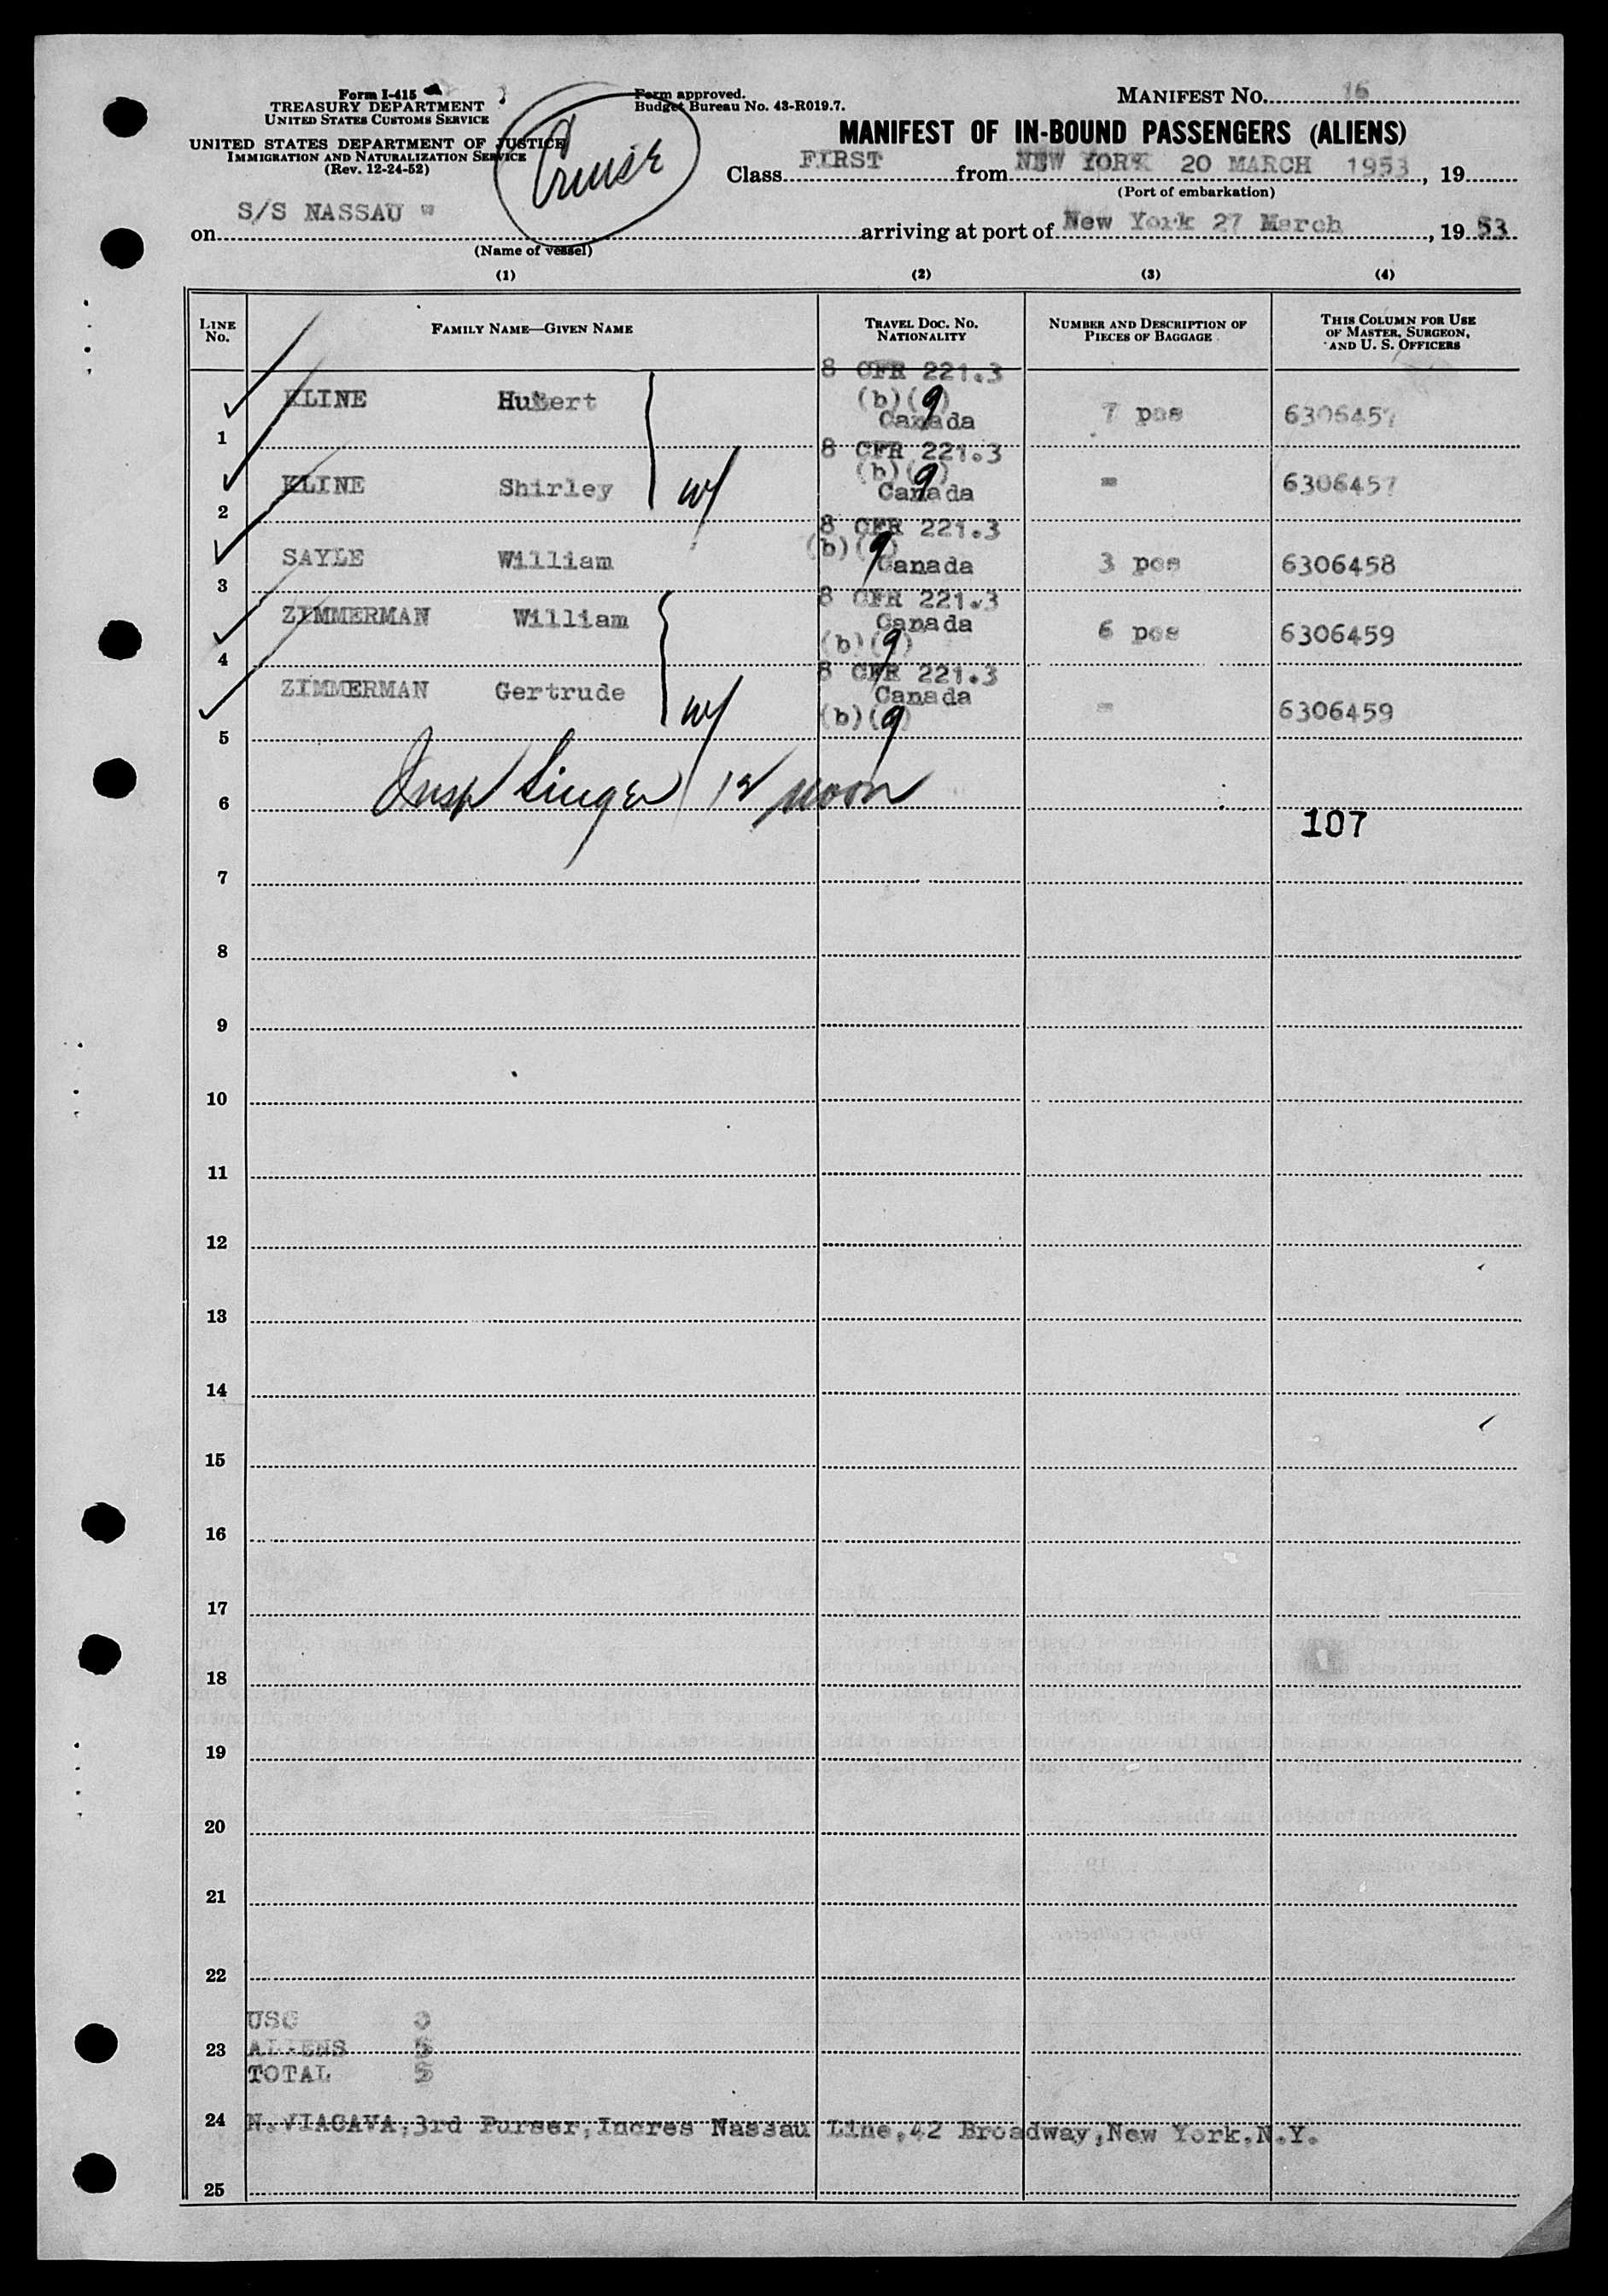 Form I-415
TREASURY DEPARTMENT
UNITED STATES CUSTOMS SERVICE
UNITED STATES DEPARTMENT OF JUSTICE
IMMIGRATION AND NATURALIZATION SERVICE
(Rev. 12-24-52)
Cruise
Form approved.
Budget Bureau No. 43-R019.7.
MANIFEST NO. 16
MANIFEST OF IN-BOUND PASSENGERS (ALIENS)
Class FIRST from NEW YORK 20 MARCH 1953, 19
(Port of embarkation)
on S/S NASSAU "
(Name of vessel)
arriving at port of New York 27 March, 19 53
(1) (2) (3) (4)
LINE No. FAMILY NAME—GIVEN NAME TRAVEL DOC. NO. NATIONALITY NUMBER AND DESCRIPTION OF PIECES OF BAGGAGE THIS COLUMN FOR USE OF MASTER, SURGEON, AND U. S. OFFICERS
1 KLINE Hubert 8 CFR 221.3 (b)(9) Canada 7 pcs 6306457
2 KLINE Shirley w/ 8 CFR 221.3 (b)(9) Canada = 6306457
3 SAYLE William 8 CFR 221.3 (b)(9) Canada 3 pcs 6306458
4 ZIMMERMAN William 8 CFR 221.3 Canada (b)(9) 6 pcs 6306459
5 ZIMMERMAN Gertrude w/ 8 CFR 221.3 Canada (b)(9) = 6306459
6 Insp Singer / 12 noon
107
7
8
9
10
11
12
13
14
15
16
17
18
19
20
21
22
USC 0
23 ALIENS 5
TOTAL 5
24 N.VIACAVA,3rd Purser,Incres Nassau Line,42 Broadway,New York.N.Y.
25